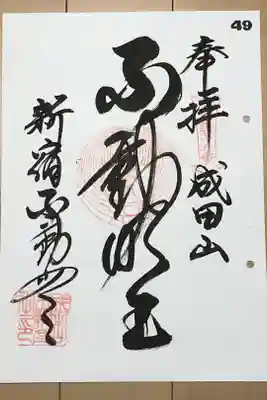 49
奉拝 成田山
不動明王
新宿不動